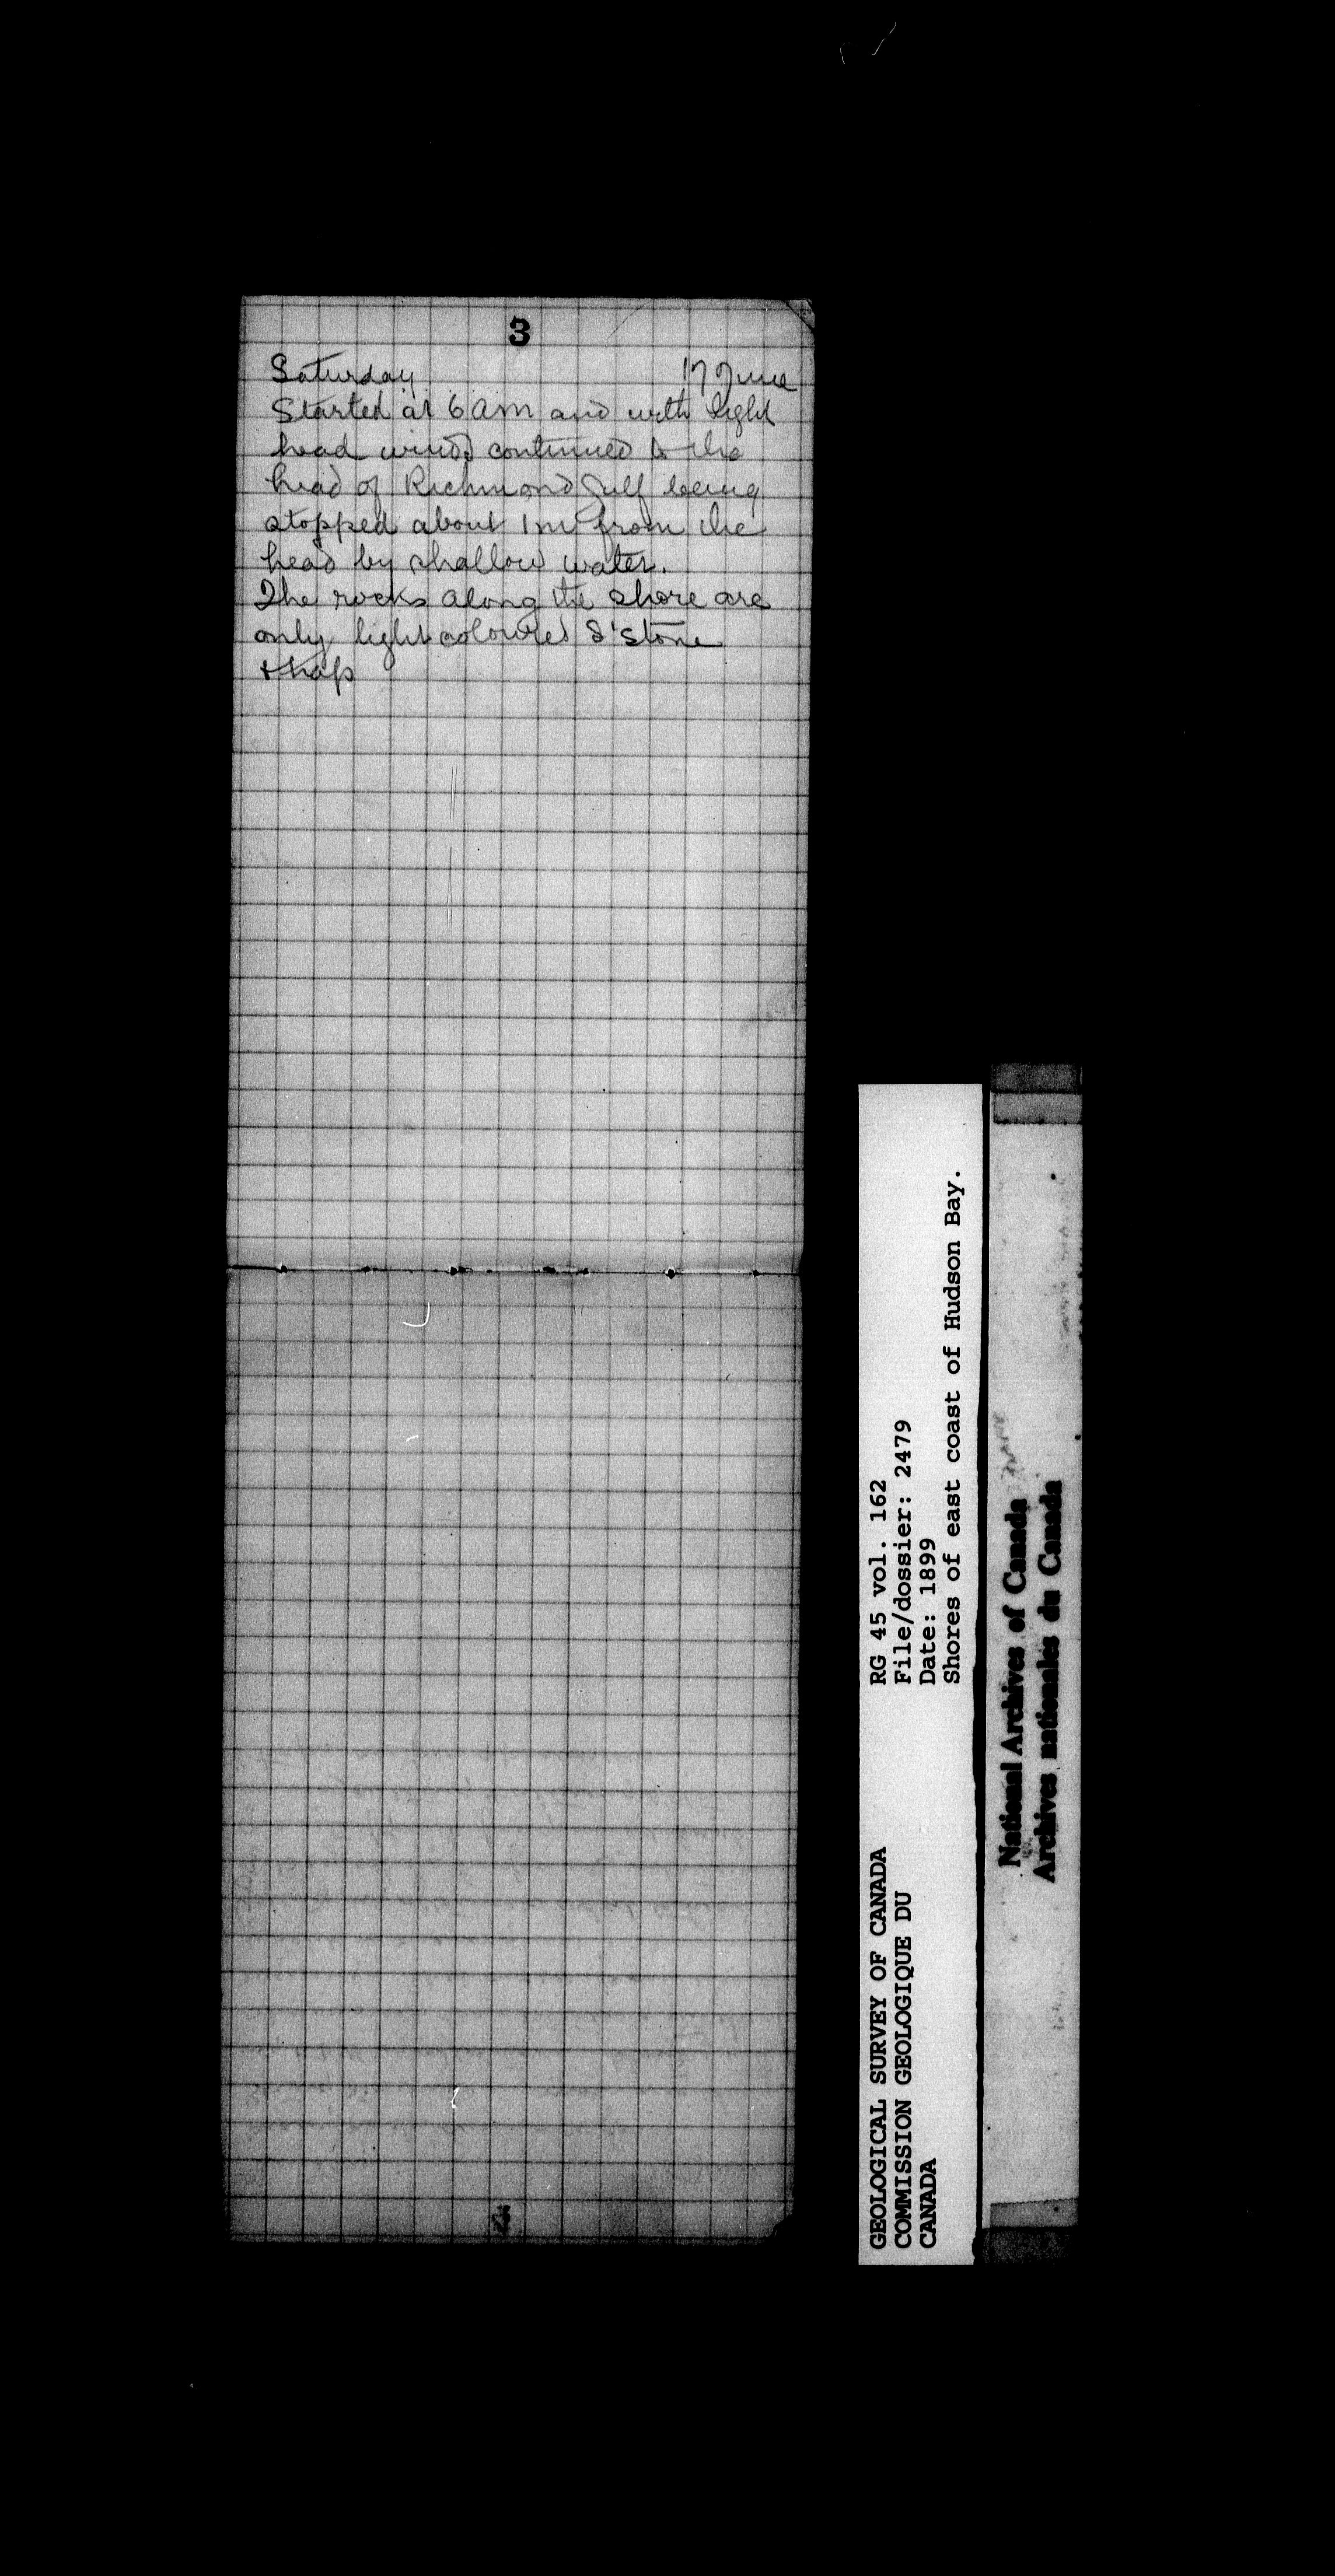 3
Saturday 17 June
Started at 6 am and with light
head winds continued to the
head of Richmond Gulf being
stopped about 1m from the
head by shallow water.
The rocks along the shore are
only light coloured S'stone
& trap
RG 45 vol. 162
File/dossier: 2479
Date: 1899
Shores of east coast of Hudson Bay.
GEOLOGICAL SURVEY OF CANADA
COMMISSION GEOLOGIQUE DU
CANADA
National Archives of Canada
Archives nationales du Canada